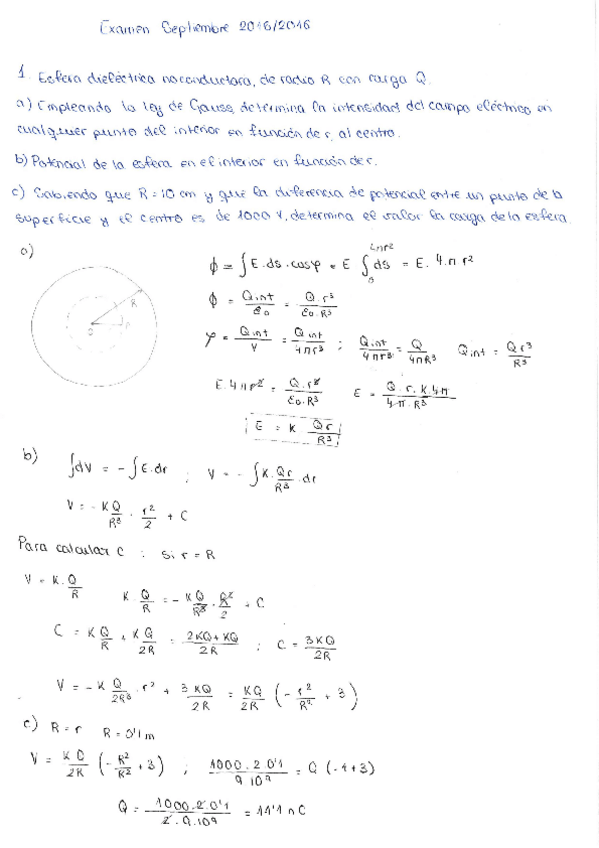 Examen Septiembre 2016/2016
1. Esfera dieléctrica no conductora, de radio R con carga Q.
a) Empleando la ley de Gauss, determina la intensidad del campo eléctrico en
cualquier punto del interior en función de r, al centro.
b) Potencial de la esfera en el interior en función de r.
c) Sabiendo que R = 10 cm y que la diferencia de potencial entre un punto de la
superficie y el centro es de 1000 V, determina el valor la carga de la esfera.
a)
R
O
r
ϕ = ∫ E·ds·cosφ = E ∫₀^{4πr²} ds = E· 4·π r²
ϕ = Qint/ε₀ = Q·r³/ε₀·R³
φ = Qint/V = Qint/4πr³ ; Qint/4πr³ = Q/4πR³ Qint = Qr³/R³
E·4πr² = Q·r³/ε₀·R³ E = Q·r·K·4π/4·π·R³
E = K Qr/R³
b) ∫dV = -∫E·dr ; V = -∫K·Qr/R³·dr
V = -KQ/R³ · r²/2 + C
Para calcular C : si r = R
V = K·Q/R K·Q/R = -KQ/R³·R²/2 + C
C = KQ/R + KQ/2R = 2KQ+KQ/2R ; C = 3KQ/2R
V = -K Q/2R³·r² + 3KQ/2R = KQ/2R (-r²/R² + 3)
c) R = r R = 0'1 m
V = KQ/2R (-R²/R² + 3) ; 1000·2·0'1/9·10⁹ = Q (-1+3)
Q = 1000·2·0'1/2·9·10⁹ = 11'1 nC